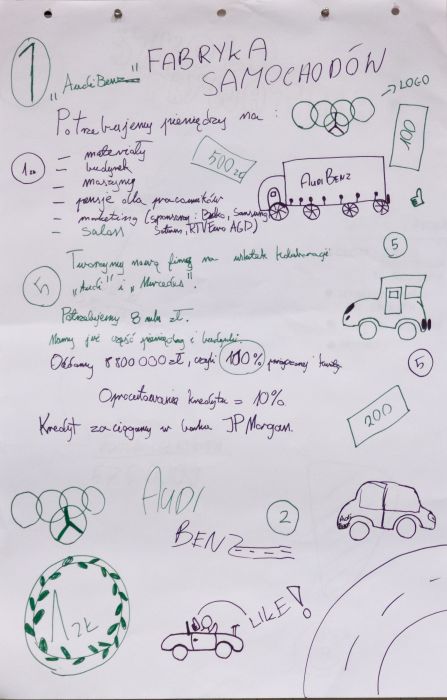 1
FABRYKA
SAMOCHODÓW
"AudiBenz"
→ LOGO
Potrzebujemy pieniędzy na:
100
500 zł
1a
— materiały
— budynek
— maszyny
— pensje dla pracowników
— marketing (sponsorzy: Belko, Samsung,
Saturn, RTVEuro AGD)
— salon
AUDIBENZ
5
Tworzymy nową firmę na skutek kolaboracji
"Audi" i "Mercedes".
5
Potrzebujemy 8 mln zł.
Mamy już część pieniędzy i budynki.
Oddamy 8 800 000 zł, czyli 110% pożyczonej kwoty
5
Oprocentowanie kredytu = 10%
200
Kredyt zaciągamy w banku JP Morgan.
AUDI
BENZ
2
Audi
1 zł
LIKE!